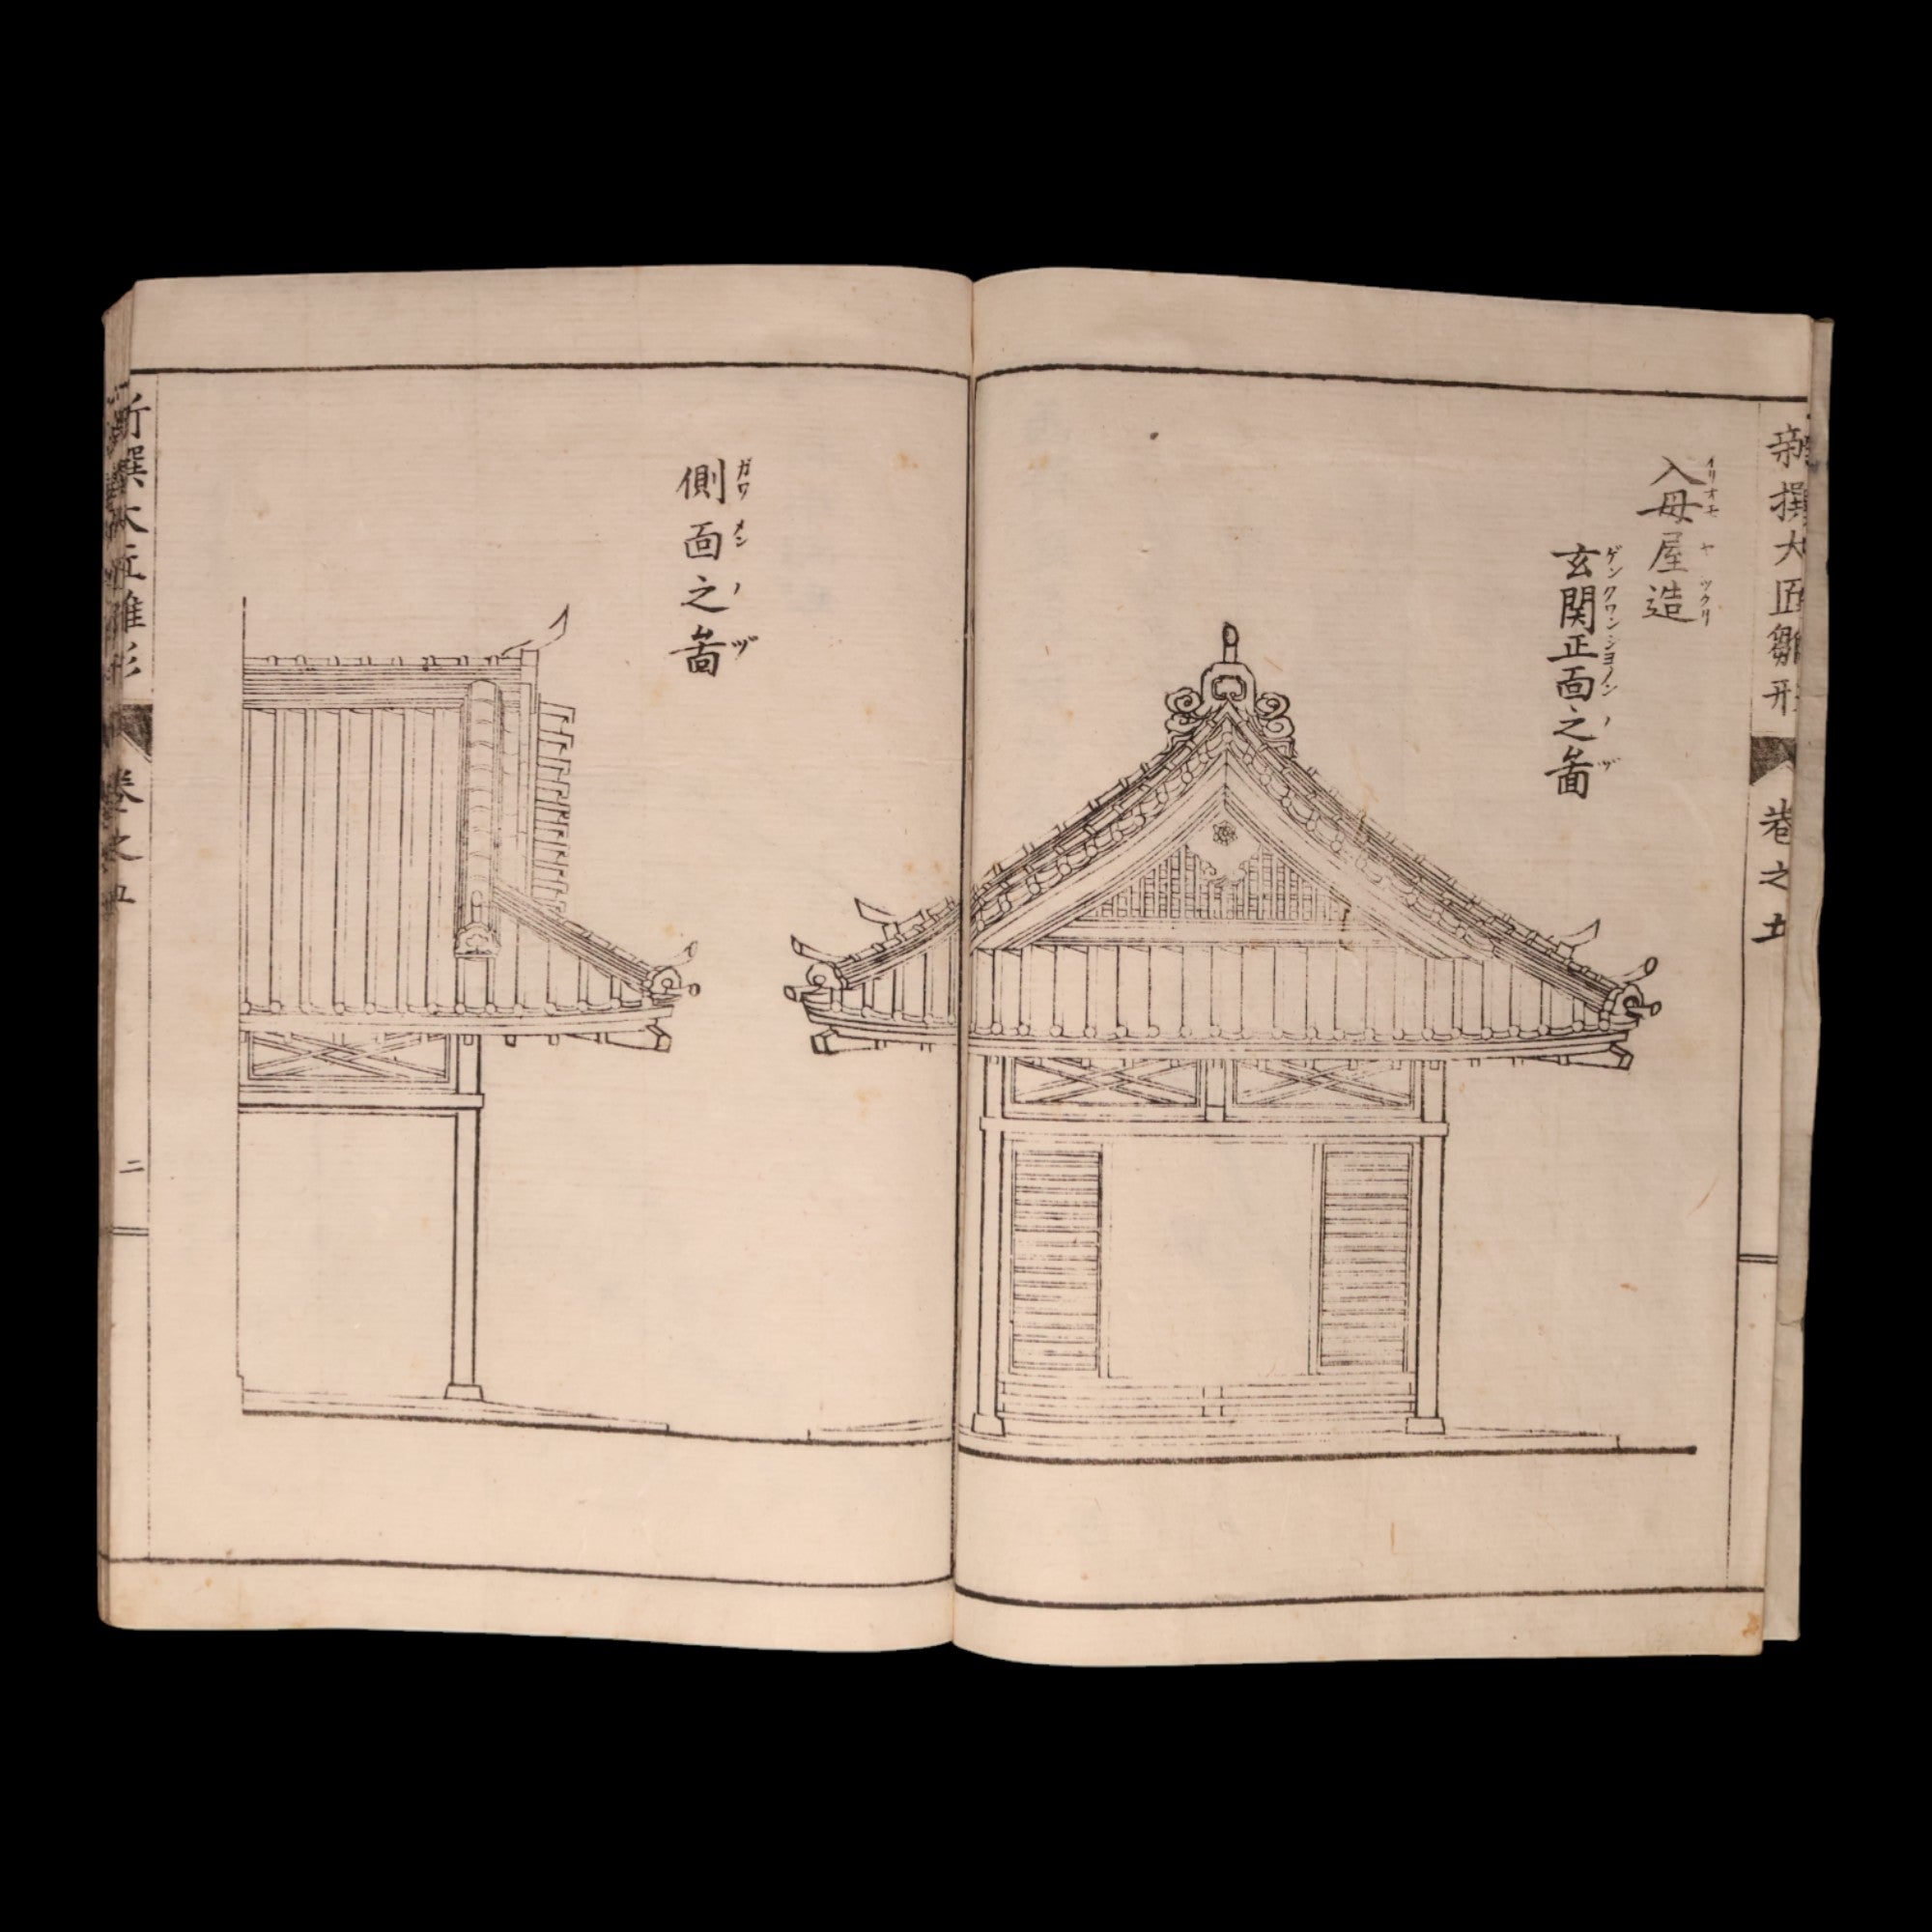 新撰大匠雛形
巻之五
入母屋造
イリオモヤツクリ
玄関正面之啚
ゲンクワンシヨメンノヅ
側面之啚
ガワメンノヅ
新撰大匠雛形
巻之五
二